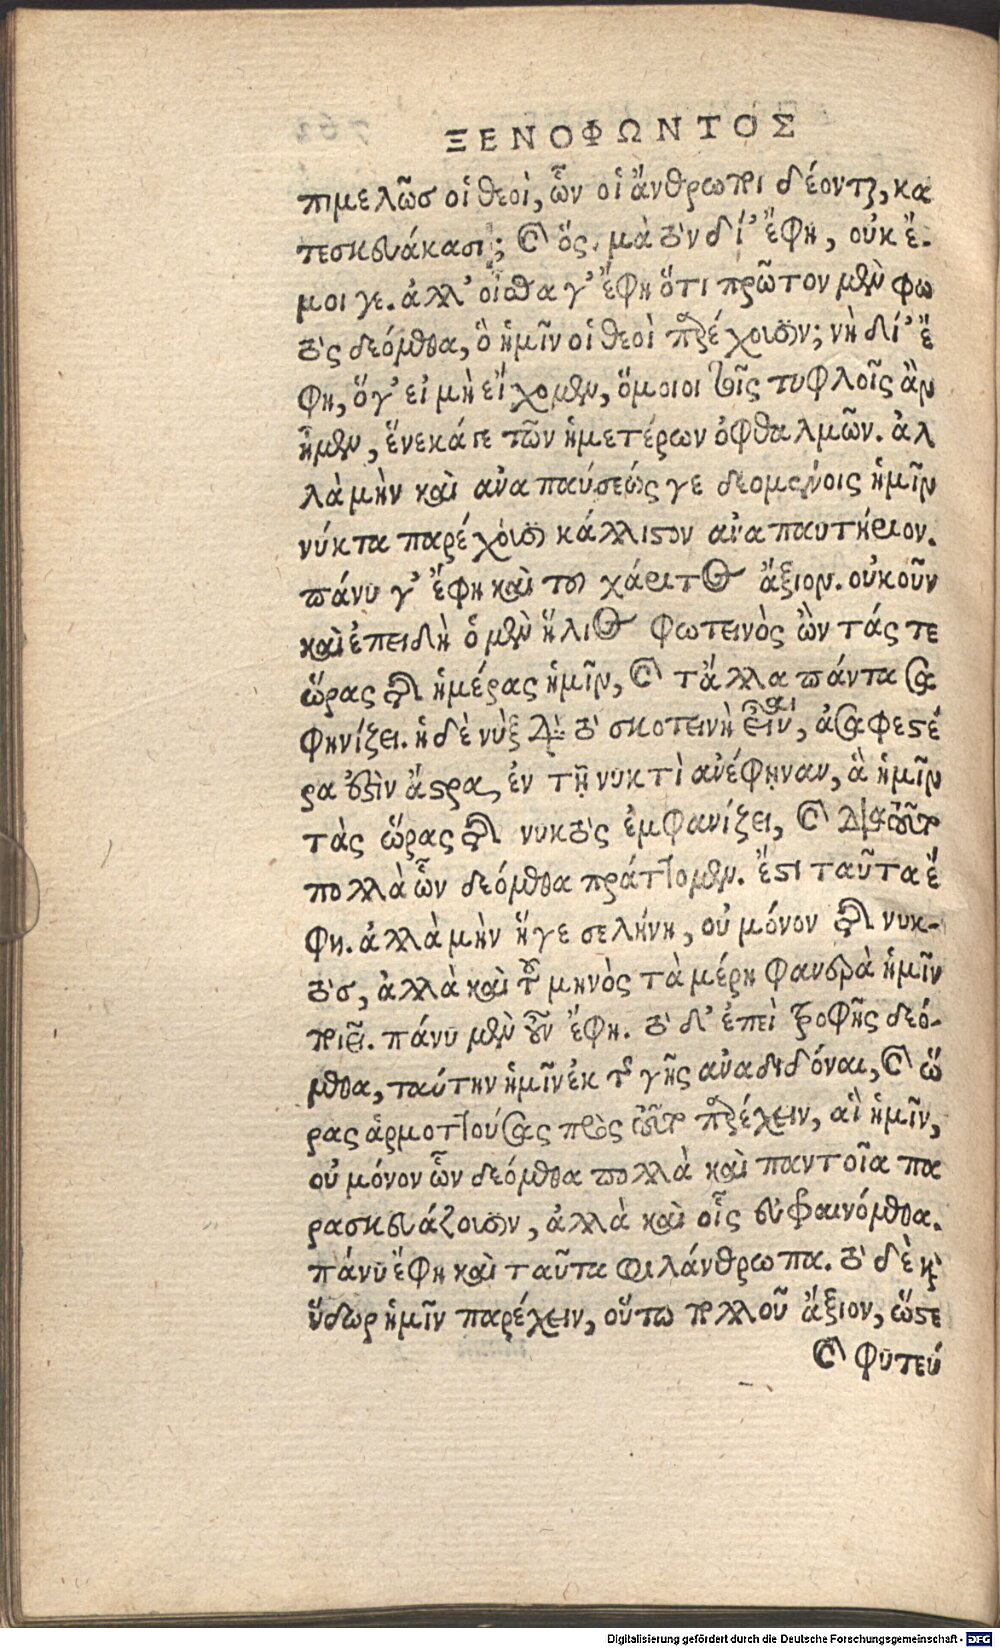 ΞΕΝΟΦΩΝΤΟΣ
πιμελῶσ οἱ θεοὶ, ὧν οἱ ἄνθρωποι δέονται, κα
τεσκευάκασι; καὶ ὅς. μὰ τὸν δί’ ἔφη, οὐκ ἔ-
μοι γε. ἀλλ’ οἶσθα γ’ ἔφη ὅτι πρῶτον μὲν φω
τὸς δεόμεθα, ὃ ἡμῖν οἱ θεοὶ παρέχουσιν; νὴ δί’ ἔ
φη, ὅγ’ εἰ μὴ εἴχομεν, ὅμοιοι τοῖς τυφλοῖς ἂν
ἦμεν, ἕνεκά γε τῶν ἡμετέρων ὀφθαλμῶν. ἀλ
λὰ μὴν καὶ ἀναπαύσεώς γε δεομένοις ἡμῖν
νύκτα παρέχουσι κάλλιστον ἀναπαυτήριον.
πάνυ γ’ ἔφη καὶ τοῦ χάριτος ἄξιον. οὐκοῦν
καὶ ἐπειδὴ ὁ μὲν ἥλιος φωτεινὸς ὢν τάς τε
ὥρας τῆς ἡμέρας ἡμῖν, καὶ τἄλλα πάντα σα
φηνίζει. ἡ δὲ νὺξ διὰ τὸ σκοτεινὴ εἶναι, ἀσαφεστέ
ρα ἐστὶν ἄστρα, ἐν τῇ νυκτὶ ἀνέφηναν, ἃ ἡμῖν
τὰς ὥρας τῆς νυκτὸς ἐμφανίζει, καὶ διὰ τοῦτο
πολλὰ ὧν δεόμεθα πράττομεν. ἔστι ταῦτα ἔ
φη. ἀλλὰ μὴν ἥγε σελήνη, οὐ μόνον τῆς νυκ-
τὸσ, ἀλλὰ καὶ τοῦ μηνὸς τὰ μέρη φανερὰ ἡμῖν
ποιεῖ. πάνυ μὲν οὖν ἔφη. τὸ δ’ ἐπεὶ τροφῆς δεό-
μεθα, ταύτην ἡμῖν ἐκ τῆς γῆς ἀναδιδόναι, καὶ ὥ
ρας ἁρμοττούσας πρὸς τοῦτο παρέχειν, αἳ ἡμῖν,
οὐ μόνον ὧν δεόμεθα πολλὰ καὶ παντοῖα πα
ρασκευάζουσιν, ἀλλὰ καὶ οἷς εὐφραινόμεθα.
πάνυ ἔφη καὶ ταῦτα φιλάνθρωπα. τὸ δὲ καὶ
ὕδωρ ἡμῖν παρέχειν, οὕτω πολλοῦ ἄξιον, ὥστε
καὶ φυτεύ
Digitalisierung gefördert durch die Deutsche Forschungsgemeinschaft - DFG